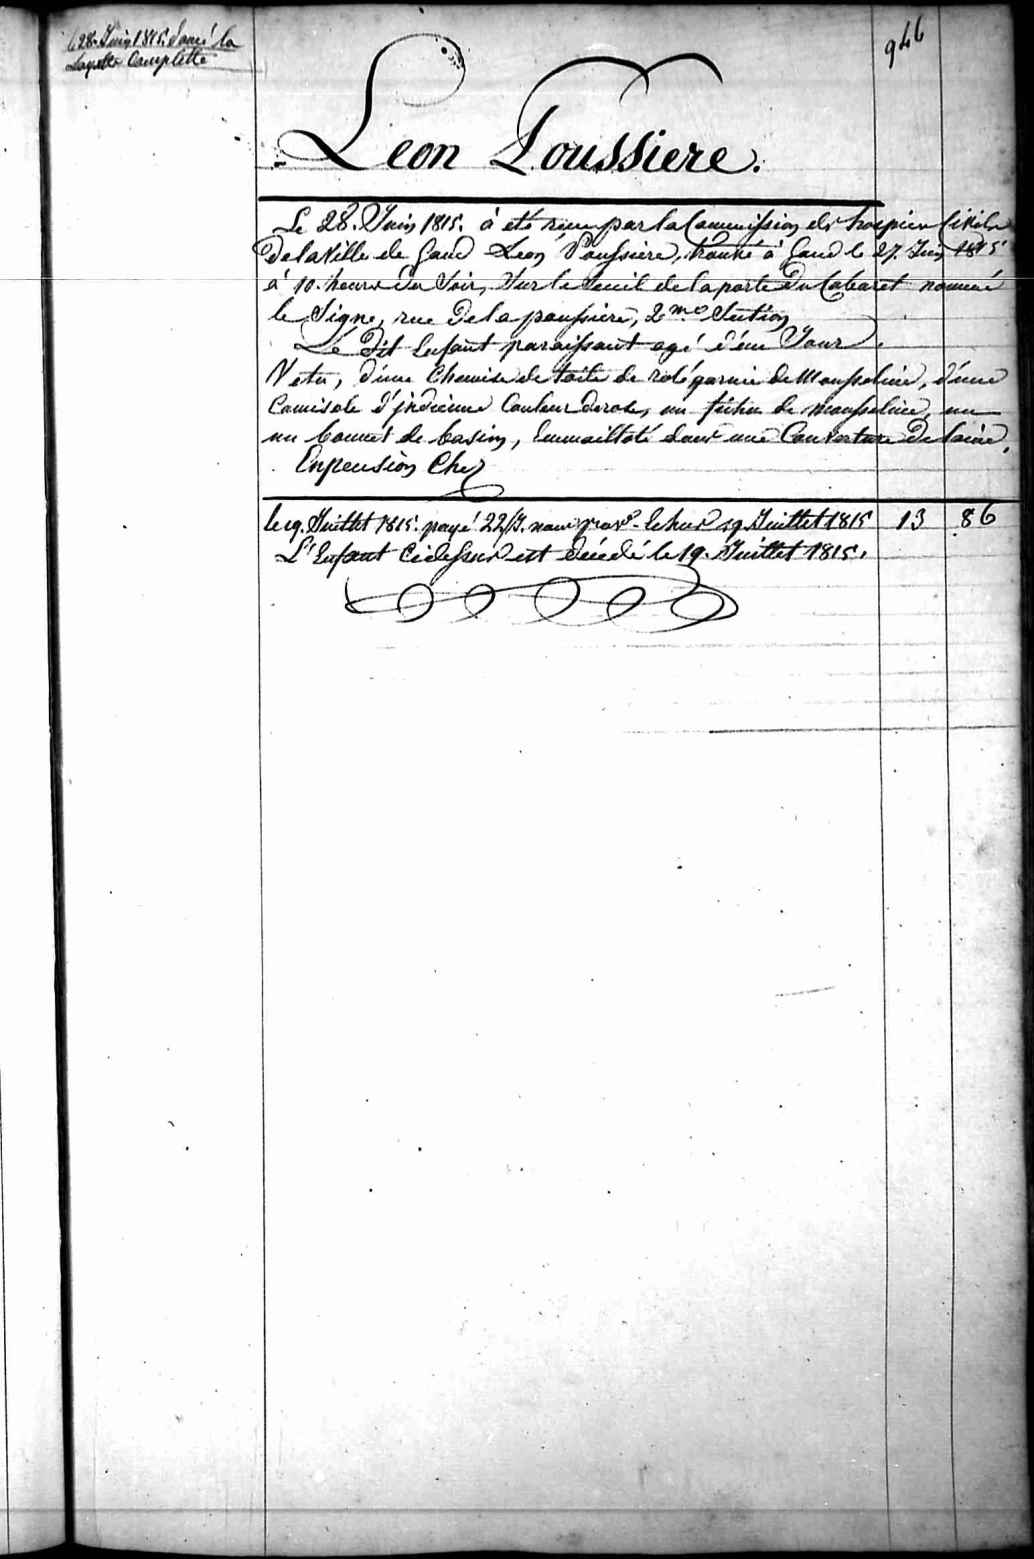 le 28. Juin 1815. donné la
Layette Complette
946
Leon Poussiere.
Le 28. Juin 1815. à eté reçu par la Commission des hospices Civils
De la Ville de Gand Leon Poussiere, trouvé à Gand le 27. Juin 1815
à 10. heures du Soir, Sur le Seuil de la porte du Cabaret nommé
le Signe, rue De la poussiere, 2me Section
Le Dit Enfant paraissant agé d'un Jour.
Vetu, d'une Chemise de toile de garnie de Mousseline, d'une
Camisole d'indienne Couleur de rose, un fichu de mousseline, un
un bonnet de basin, Emmailloté dans une Couverture De laine,
En pension Chez
le 19. Juillet 1815. payé 22 19 Juillet 1815 13 86
L'Enfant Cidessus est décédé le 19. Juillet 1815.